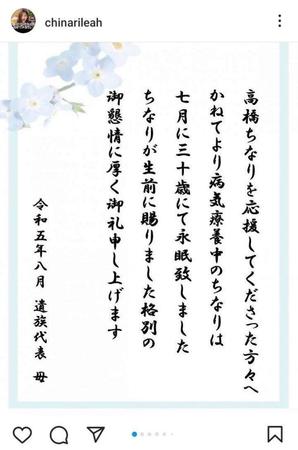 chinarileah
高橋ちなりを応援してくださった方々へ
かねてより病気療養中のちなりは
七月に三十歳にて永眠致しました
ちなりが生前に賜りました格別の
御懇情に厚く御礼申し上げます
令和五年八月 遺族代表 母